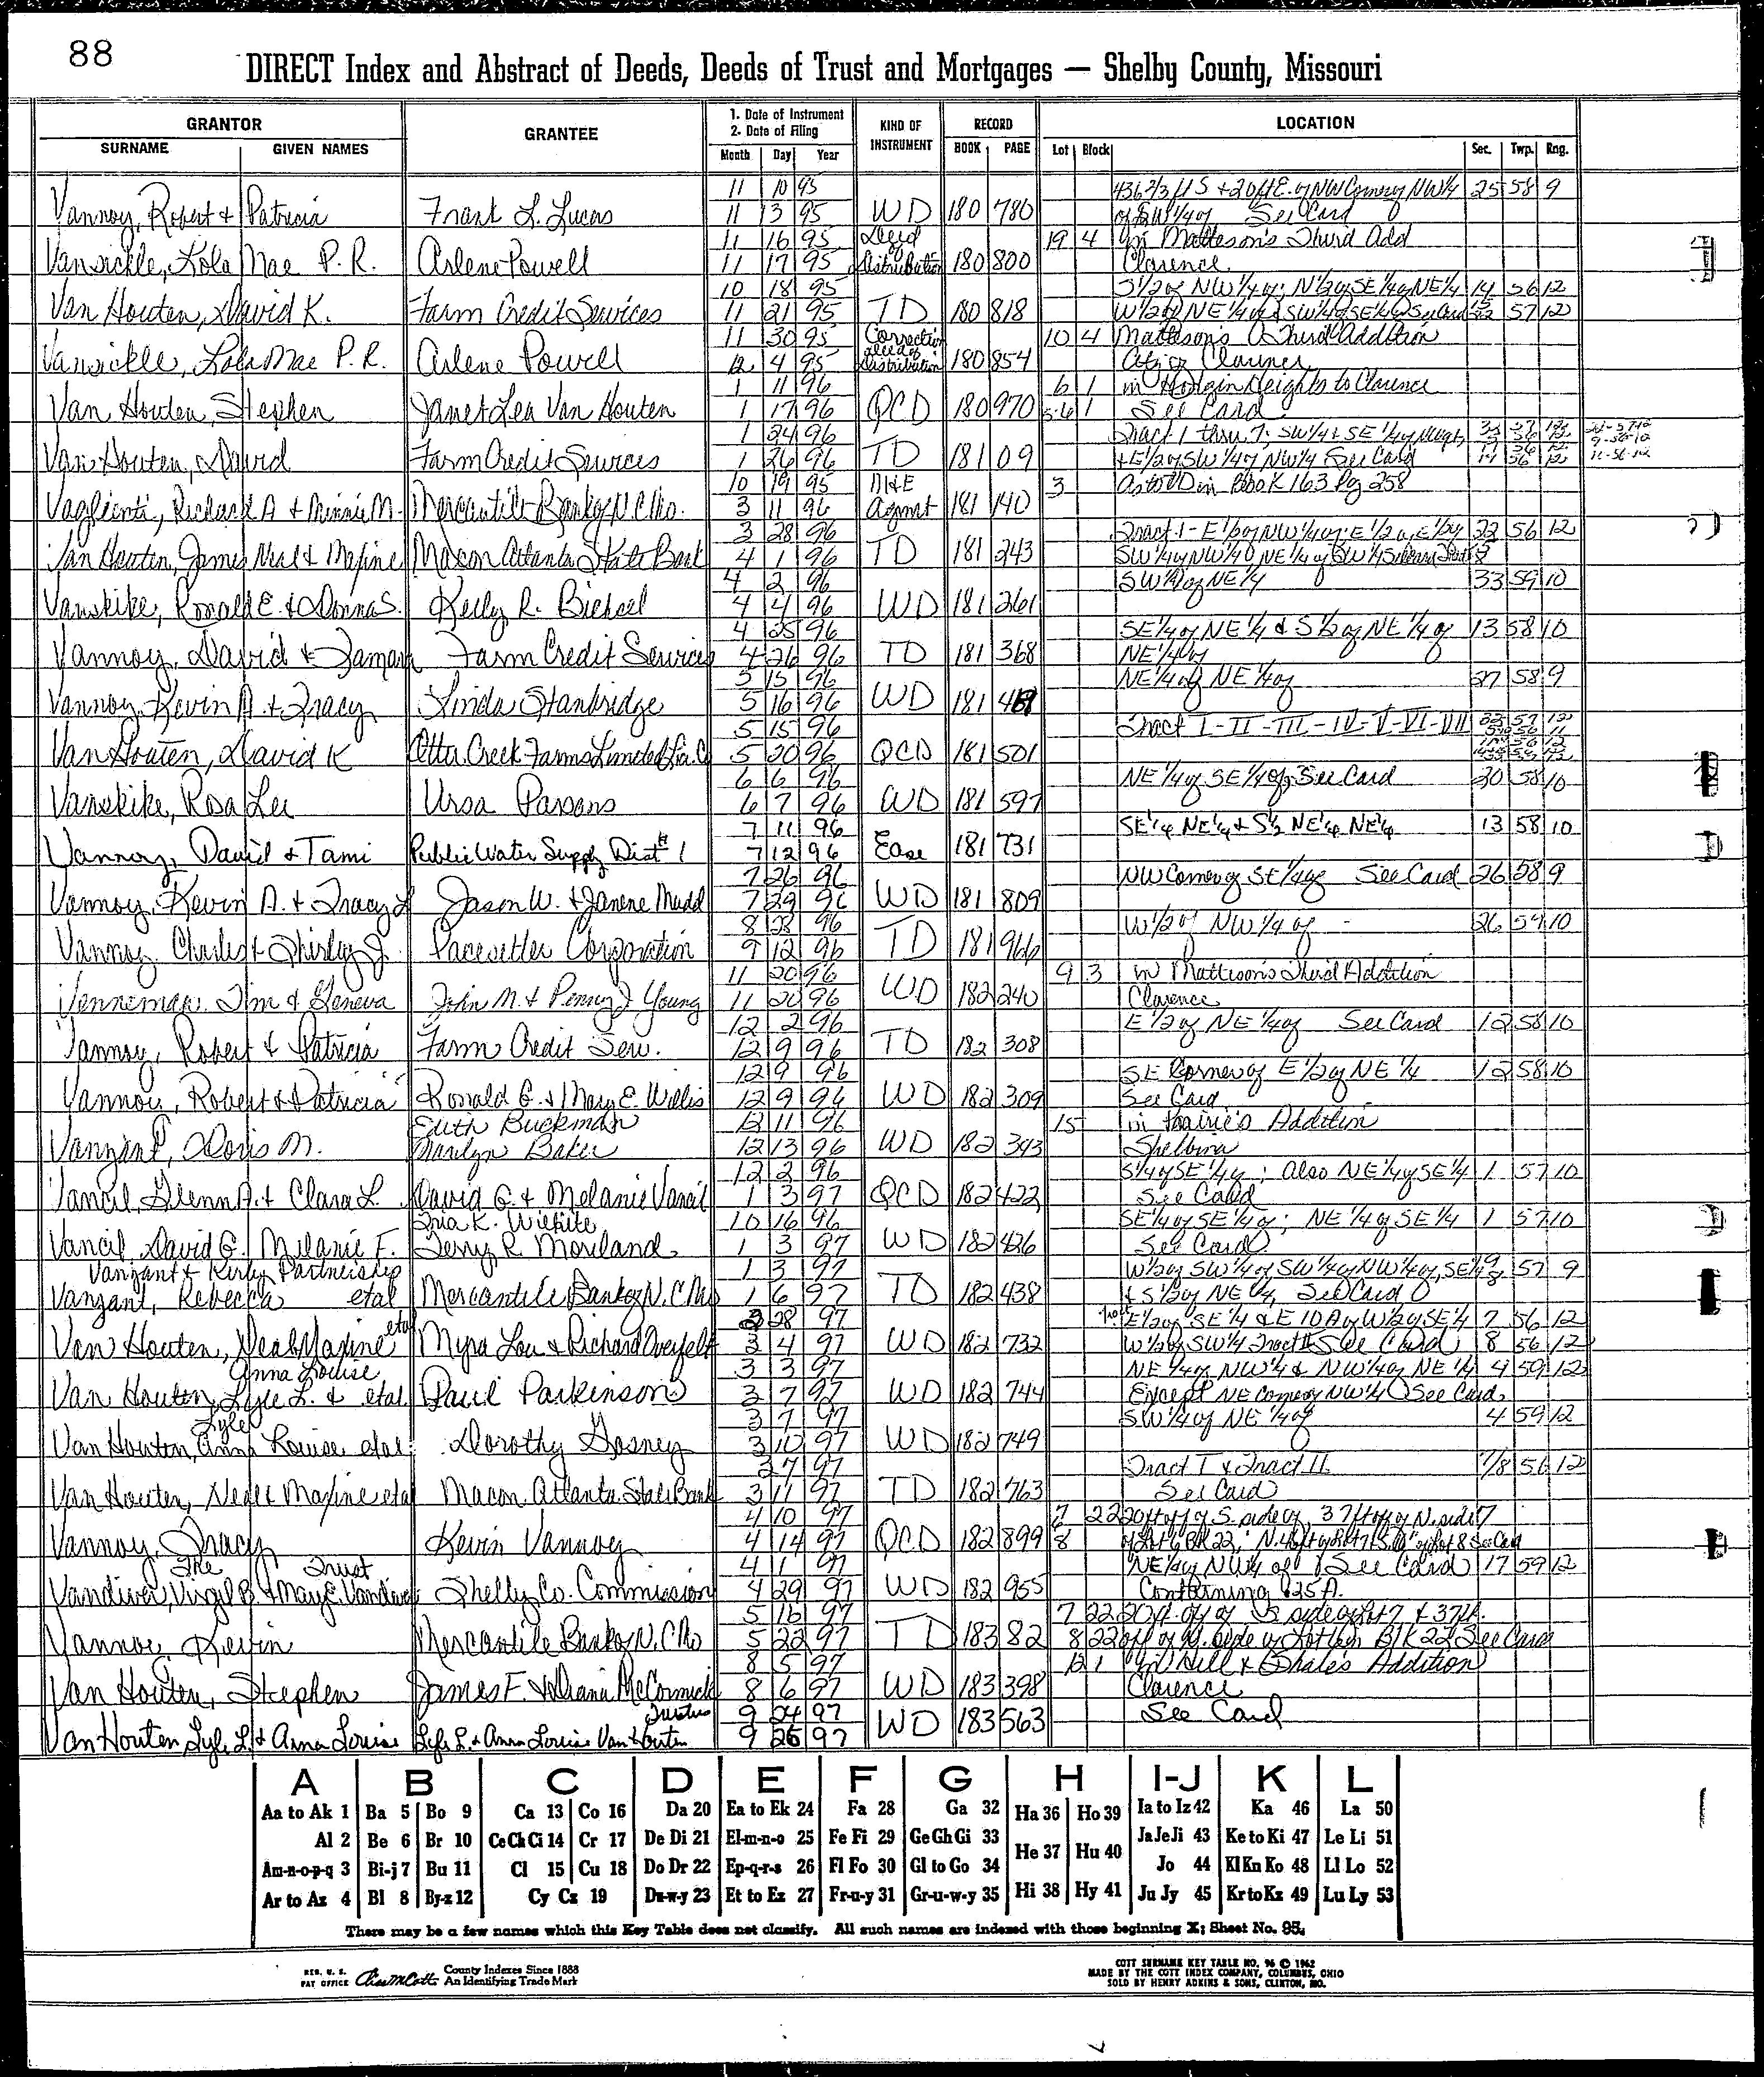 88
DIRECT Index and Abstract of Deeds, Deeds of Trust and Mortgages — Shelby County, Missouri
GRANTOR GRANTEE 1. Date of Instrument 2. Date of Filing KIND OF INSTRUMENT RECORD LOCATION
SURNAME GIVEN NAMES Month Day Year BOOK PAGE Lot Block Sec. Twp. Rng.
11 10 95 436 2/3 ft S + 20 ft E. of NW Corner of NW 1/4 25 58 9
Vannoy, Robert & Patricia Frank L. Lucas 11 13 95 WD 180 780 of SW 1/4 of See Card
11 16 95 Deed of 19 4 in Matteson's Third Add
Vansickle, Lola Mae P.R. Arlene Powell 11 17 95 Distribution 180 800 Clarence
10 18 95 S 1/2 of NW 1/4 of; N 1/2 of SE 1/4 of NE 1/4 14 56 12
Van Houten, David K. Farm Credit Services 11 21 95 TD 180 818 W 1/2 of NE 1/4 of & SW 1/4 of SE 1/4 of See Card 57 12
11 30 95 Correction 10 4 Matteson's Third Addition
Vansickle, Lola Mae P.R. Arlene Powell 12 4 95 Deed of Distribution 180 854 City of Clarence
1 11 96 6 1 in Hodgin Heights to Clarence
Van Houten, Stephen Janet Lea Van Houten 1 17 96 QCD 180 970 5-6 1 See Card
1 24 96 Tract 1 thru 7: SW 1/4 & SE 1/4 of NW 1/4
Van Houten, David Farm Credit Services 1 26 96 TD 181 09 & E 1/2 of SW 1/4 of NW 1/4 See Card 14 56 12
10 19 95 3 as to DD in Book 163 Pg 258
Vaglienti, Richard A & Minnie M. Mercantile Bank of N.C. Mo. 3 11 96 Agmt 181 140
3 28 96 Tract 1 - E 1/2 of NW 1/4 of; E 1/2 of E 1/2 of 22 56 12
Van Houten, James Neal & Maxine Macon Atlanta State Bank 4 1 96 TD 181 243 SW 1/4 of NW 1/4 of NE 1/4 of SW 1/4
4 2 96 SW 1/4 of NE 1/4 33 59 10
Vanskike, Ronald E. & Donna S. Kelly R. Bichsel 4 4 96 WD 181 261
4 25 96 SE 1/4 of NE 1/4 & S 1/2 of NE 1/4 of 13 58 10
Vannoy, David & Tamara Farm Credit Services 4 26 96 TD 181 368 NE 1/4 of
5 15 96 NE 1/4 of NE 1/4 of 27 58 9
Vannoy, Kevin A. & Tracy Linda Stanbridge 5 16 96 WD 181
5 15 96 Tract I-II-III-IV-V-VI-VII
Van Houten, David K Otter Creek Farms Limited Lia. Co 5 20 96 QCD 181 501
6 6 96 NE 1/4 of SE 1/4 of See Card 30 58 10
Vanskike, Rosa Lee Ursa Parsons 6 7 96 WD 181 597
7 11 96 SE 1/4 NE 1/4 & S 1/2 NE 1/4 NE 1/4 13 58 10
Vannoy, David & Tami Public Water Supply Dist #1 7 12 96 Ease 181 731
7 26 96 NW Corner of SE 1/4 of See Card 26 58 9
Vannoy, Kevin A. & Tracy L Jason W. & Janene Mudd 7 29 96 WD 181 809
8 28 96 W 1/2 of NW 1/4 of - 26 59 10
Vannoy, Charles & Shirley J. Pacesetter Corporation 9 12 96 TD 181 966
11 20 96 9 3 in Matteson's Third Addition
Venneman, Tim & Geneva John M. & Penny J Young 11 20 96 WD 182 240 Clarence
12 2 96 E 1/2 of NE 1/4 of See Card 12 58 10
Vannoy, Robert & Patricia Farm Credit Serv. 12 9 96 TD 182 308
12 9 96 SE Corner of E 1/2 of NE 1/4 12 58 10
Vannoy, Robert & Patricia Ronald G. & Mary E. Willis 12 9 96 WD 182 309 See Card
Edith Buckman 12 11 96 15 in Prairie's Addition
Vanzant, Doris M. Marilyn Baker 12 13 96 WD 182 343 Shelbina
12 2 96 S 1/4 of SE 1/4 of; Also NE 1/4 of SE 1/4 1 57 10
Vancil, Glenn A. & Clara L. David G. & Melanie Vancil 1 3 97 QCD 182 422 See Card
K. Wilhite 10 16 96 SE 1/4 of SE 1/4 of; NE 1/4 of SE 1/4 1 57 10
Vancil, David G. Melanie F. Terry R. Moreland 1 3 97 WD 182 426 See Card
Vanzant & Kirby Partnership 1 3 97 W 1/2 of SW 1/4 of SW 1/4 of NW 1/4 of, SE 1/4 57 9
Vanzant, Rebecca etal Mercantile Bank of N.C. Mo 1 6 97 TD 182 438 & S 1/2 of NE 1/4 See Card
etal 2 28 97 E 1/2 of SE 1/4 & E 10 A of W 1/2 of SE 1/4 7 56 12
Van Houten, Neal & Maxine Myra Lou & Richard Overfelt 3 4 97 WD 182 732 W 1/2 of SW 1/4 Tract II See Card 8 56 12
Anna Louise 3 3 97 NE 1/4 of NW 1/4 & NW 1/4 of NE 1/4 4 59 12
Van Houten, Lyle L. & etal Paul Parkinson 3 7 97 WD 182 744 Except NE Corner of NW 1/4 See Card
Lyle 3 7 97 SW 1/4 of NE 1/4 of 4 59 12
Van Houten, Anna Louise etal Dorothy Gosney 3 10 97 WD 182 749
3 7 97 Tract I & Tract II 7/8 56 12
Van Houten, Neal & Maxine etal Macon Atlanta State Bank 3 11 97 TD 182 763 See Card
4 10 97 7 22 20 ft off of S. side of, 37 ft off of N. side 7
Vannoy, Tracy Kevin Vannoy 4 14 97 QCD 182 899 8 See Card
The Trust 4 1 97 NE 1/4 of NW 1/4 of See Card 17 59 12
Vandiver, Virgil B. & Mary E. Vandiver Shelby Co. Commission 4 29 97 WD 182 955 Containing .25 A.
5 16 97 7 22 20 ft. off of S side of Lot 7 & 37 ft.
Vannoy, Kevin Mercantile Bank of N.C. Mo 5 22 97 TD 183 82 8 22 off of N. side of Lot 8 in Blk 22 See Card
8 5 97 12 1 in Hill & Shale's Addition
Van Houten, Stephen James F. & Diana McCormick 8 6 97 WD 183 398 Clarence
Trustees 9 24 97 See Card
Van Houten Lyle L. & Anna Louise Lyle L. & Anna Louise Van Houten 9 26 97 WD 183 563
A B C D E F G H I-J K L
Aa to Ak 1 Ba 5 Bo 9 Ca 13 Co 16 Da 20 Ea to Ek 24 Fa 28 Ga 32 Ha 36 Ho 39 Ia to Iz 42 Ka 46 La 50
Al 2 Be 6 Br 10 Ce Ch Ci 14 Cr 17 De Di 21 El-m-n-o 25 Fe Fi 29 Ge Gh Gi 33 He 37 Hu 40 Ja Je Ji 43 Ke to Ki 47 Le Li 51
Am-n-o-p-q 3 Bi-j 7 Bu 11 Cl 15 Cu 18 Do Dr 22 Ep-q-r-s 26 Fl Fo 30 Gl to Go 34 Jo 44 Kl Kn Ko 48 Ll Lo 52
Ar to Az 4 Bl 8 By-z 12 Cy Cz 19 Du-w-y 23 Et to Ez 27 Fr-u-y 31 Gr-u-w-y 35 Hi 38 Hy 41 Ju Jy 45 Kr to Kz 49 Lu Ly 53
There may be a few names which this Key Table does not classify. All such names are indexed with those beginning X; Sheet No. 95.
REG. U. S. PAT OFFICE County Indexes Since 1888 An Identifying Trade Mark
COTT SURNAME KEY TABLE NO. 96 © 1962
MADE BY THE COTT INDEX COMPANY, COLUMBUS, OHIO
SOLD BY HENRY ADKINS & SONS, CLINTON, MO.